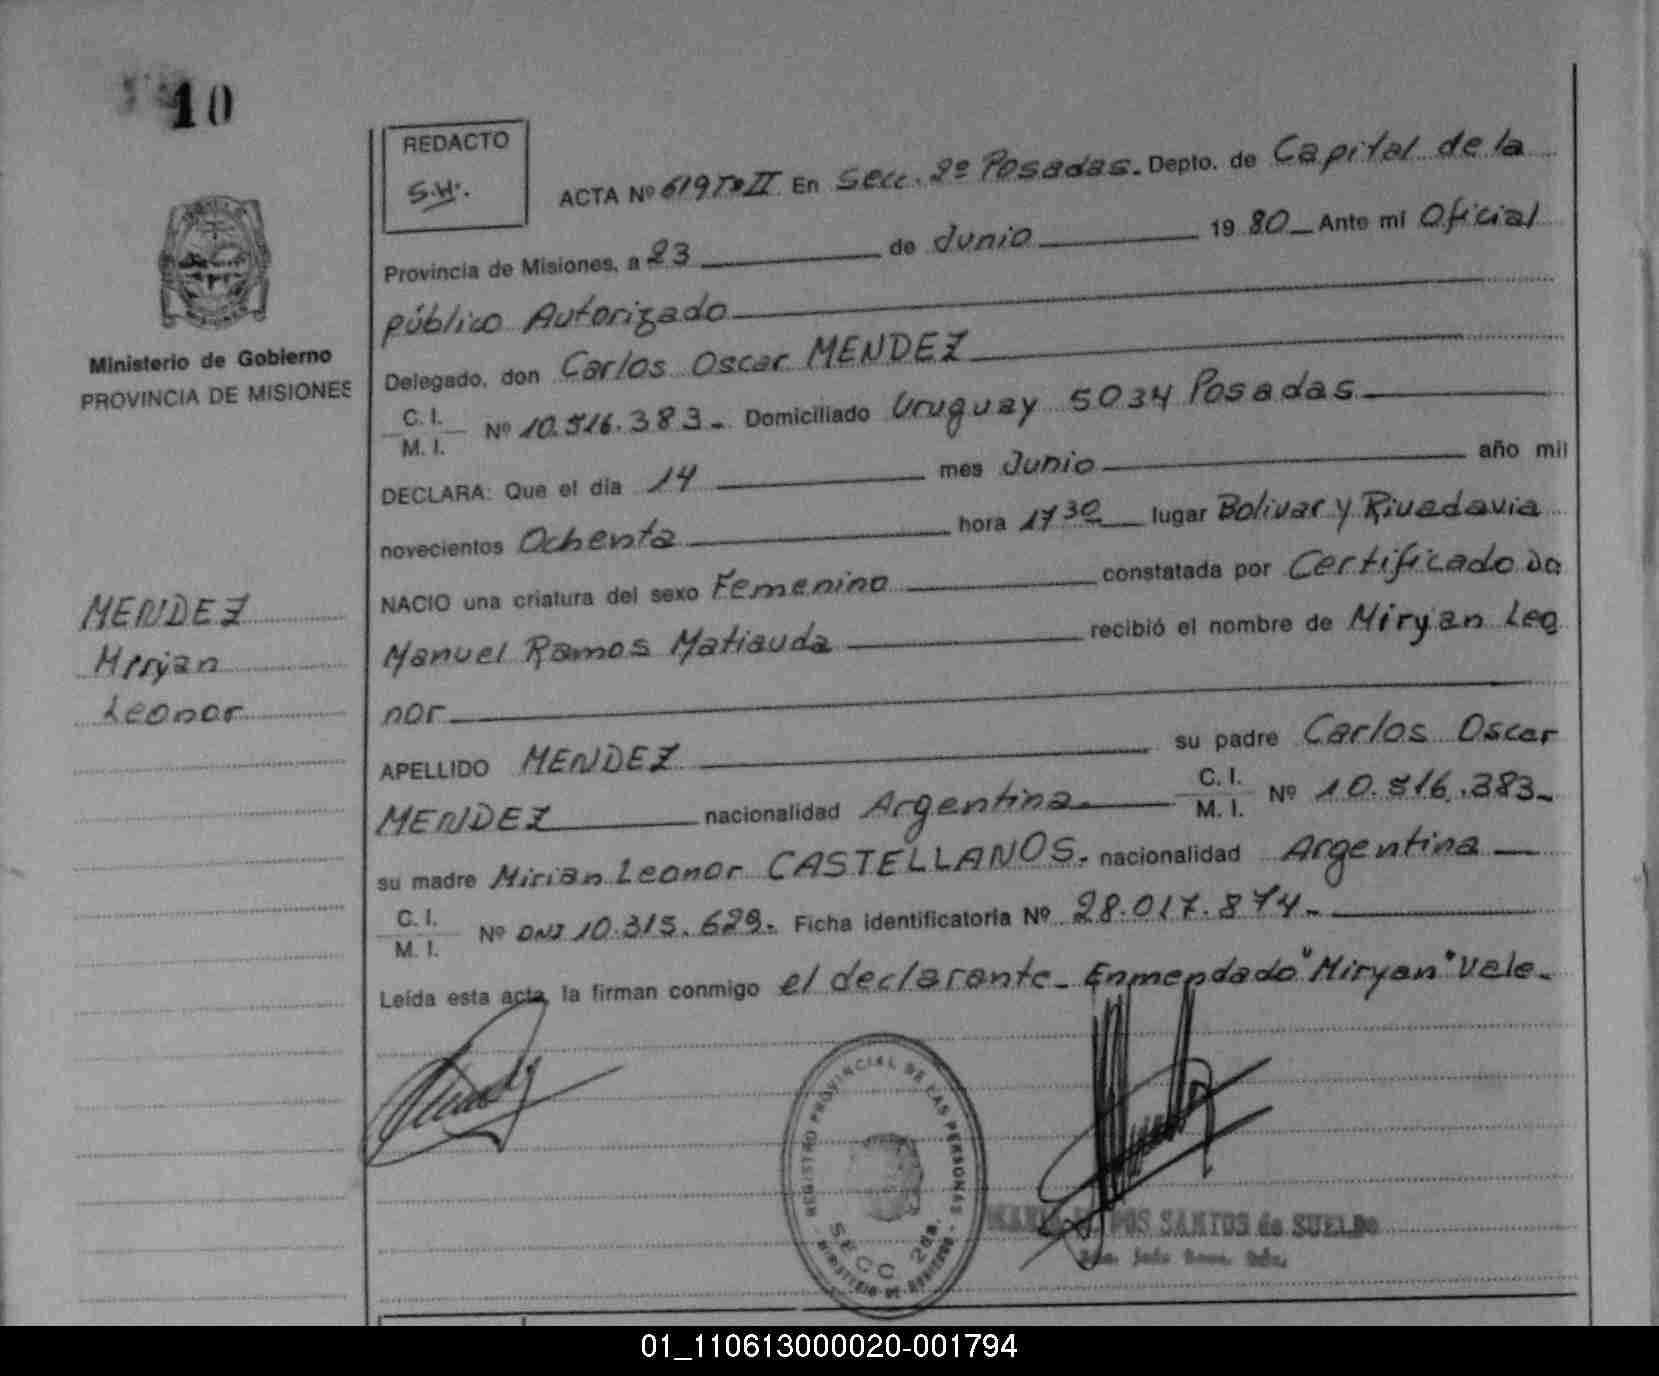 10
REDACTO
S.H.
ACTA Nº 619 Tº II En Secc. 2º Posadas. Depto. de Capital de la
Provincia de Misiones, a 23 de Junio 19 80 Ante mi Oficial
público Autorizado
Delegado, don Carlos Oscar MENDEZ
C. I.
M. I. Nº 10.516.383 - Domiciliado Uruguay 5034 Posadas
DECLARA: Que el dia 14 mes Junio año mil
novecientos Ochenta hora 17 30 lugar Bolivar y Rivadavia
NACIO una criatura del sexo Femenino constatada por Certificado Do
Manuel Ramos Matiauda recibió el nombre de Miryan Leo
nor
APELLIDO MENDEZ su padre Carlos Oscar
MENDEZ nacionalidad Argentina. C. I.
M. I. Nº 10.516.383-
su madre Mirian Leonor CASTELLANOS. nacionalidad Argentina
C. I.
M. I. Nº DNI 10.315.629. Ficha identificatoria Nº 28.017.874.-
Leída esta acta, la firman conmigo el declarante - Enmendado "Miryan" Vale-
Ministerio de Gobierno
PROVINCIA DE MISIONES
MENDEZ
Miryan
Leonor
REGISTRO PROVINCIAL DE LAS PERSONAS
SECC 2da.
MINISTERIO DE GOBIERNO
DOS SANTOS de SUELDO
01_110613000020-001794